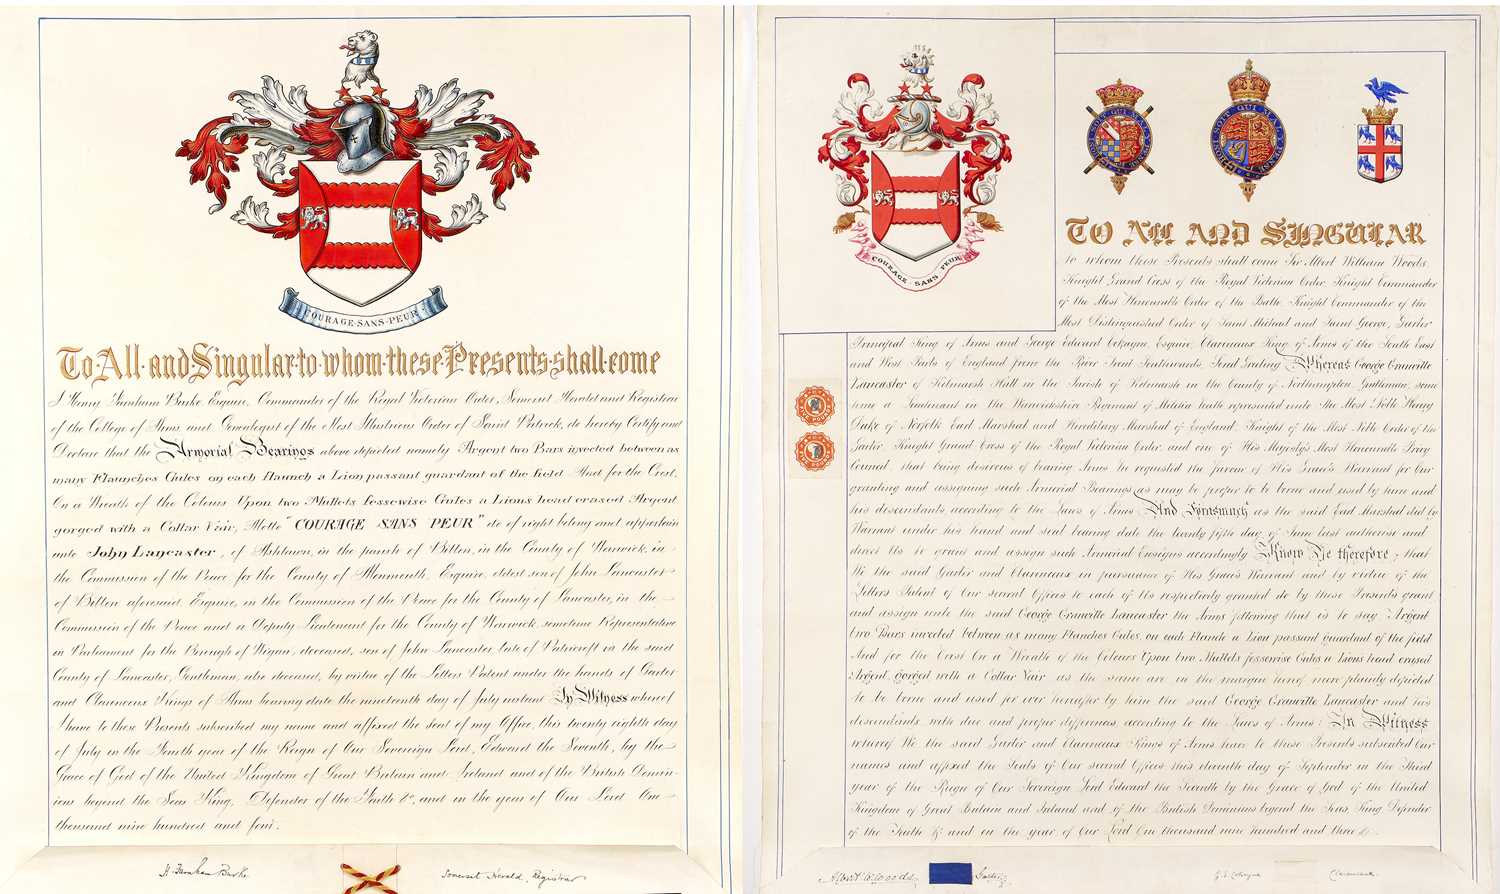 COURAGE·SANS·PEUR
To·All·and·Singular·to·whom·these·Presents·shall·come
I Henry Farnham Burke, Esquire, Commander of the Royal Victorian Order, Somerset Herald and Registrar
of the College of Arms and Genealogist of the Most Illustrious Order of Saint Patrick, do hereby Certify and
Declare that the Armorial Bearings above depicted namely Argent two Bars invected between as
many Flaunches Gules on each flaunch a Lion passant guardant of the field And for the Crest,
On a Wreath of the Colours Upon two Mullets fessewise Gules a Lions head erased Argent,
gorged with a Collar Vair, Motto "COURAGE SANS PEUR" do of right belong and appertain
unto John Lancaster, of Ashlawn, in the parish of Bilton, in the County of Warwick, in
the Commission of the Peace for the County of Monmouth, Esquire, eldest son of John Lancaster
of Bilton aforesaid, Esquire, in the Commission of the Peace for the County of Lancaster, in the
Commission of the Peace and a Deputy Lieutenant for the County of Warwick, sometime Representative
in Parliament for the Borough of Wigan, deceased, son of John Lancaster late of Patricroft in the said
County of Lancaster, Gentleman, also deceased, by virtue of the Letters Patent under the hands of Garter
and Clarenceux Kings of Arms bearing date the nineteenth day of July instant In Witness whereof
I have to these Presents subscribed my name and affixed the seal of my Office, this twenty eighth day
of July in the Fourth year of the Reign of Our Sovereign Lord, Edward the Seventh, by the
Grace of God of the United Kingdom of Great Britain and Ireland and of the British Domin-
ions beyond the Seas King, Defender of the Faith &c, and in the year of Our Lord One
thousand nine hundred and four.
H. Farnham Burke Somerset Herald, Registrar
COURAGE·SANS·PEUR
TO ALL AND SINGULAR
to whom these Presents shall come Sir Albert William Woods,
Knight Grand Cross of the Royal Victorian Order, Knight Commander
of the Most Honourable Order of the Bath, Knight Commander of the
Most Distinguished Order of Saint Michael and Saint George, Garter
Principal King of Arms and George Edward Cokayne, Esquire, Clarenceux King of Arms of the South East
and West Parts of England from the River Trent Southwards, Send Greeting Whereas George Granville
Lancaster of Kelmarsh Hall in the Parish of Kelmarsh in the County of Northampton, Gentleman, some
time a Lieutenant in the Warwickshire Regiment of Militia hath represented unto the Most Noble Henry
Duke of Norfolk Earl Marshal and Hereditary Marshal of England, Knight of the Most Noble Order of the
Garter, Knight Grand Cross of the Royal Victorian Order, and one of His Majesty's Most Honourable Privy
Council, that being desirous of bearing Arms he requested the favour of His Grace's Warrant for Our
granting and assigning such Armorial Bearings as may be proper to be borne and used by him and
his descendants according to the Laws of Arms And Forasmuch as the said Earl Marshal did by
Warrant under his hand and seal bearing date the twenty fifth day of June last authorise and
direct Us to grant and assign such Armorial Ensigns accordingly Know Ye therefore, that
We the said Garter and Clarenceux in pursuance of His Grace's Warrant and by virtue of the
Letters Patent of Our several Offices to each of Us respectively granted do by these Presents grant
and assign unto the said George Granville Lancaster the Arms following that is to say Argent
two Bars invected between as many Flanches Gules, on each Flanch a Lion passant guardant of the field
And for the Crest On a Wreath of the Colours Upon two Mullets fessewise Gules a Lions head erased
Argent, Gorged with a Collar Vair as the same are in the margin hereof more plainly depicted
to be borne and used for ever hereafter by him the said George Granville Lancaster and his
descendants with due and proper differences according to the Laws of Arms: In Witness
whereof We the said Garter and Clarenceux Kings of Arms have to these Presents subscribed Our
names and affixed the Seals of Our several Offices this eleventh day of September in the Third
year of the Reign of Our Sovereign Lord Edward the Seventh by the Grace of God of the United
Kingdom of Great Britain and Ireland and of the British Dominions beyond the Seas King Defender
of the Faith &c and in the year of Our Lord One thousand nine hundred and three
Albert W. Woods Garter G. E. Cokayne Clarenceux